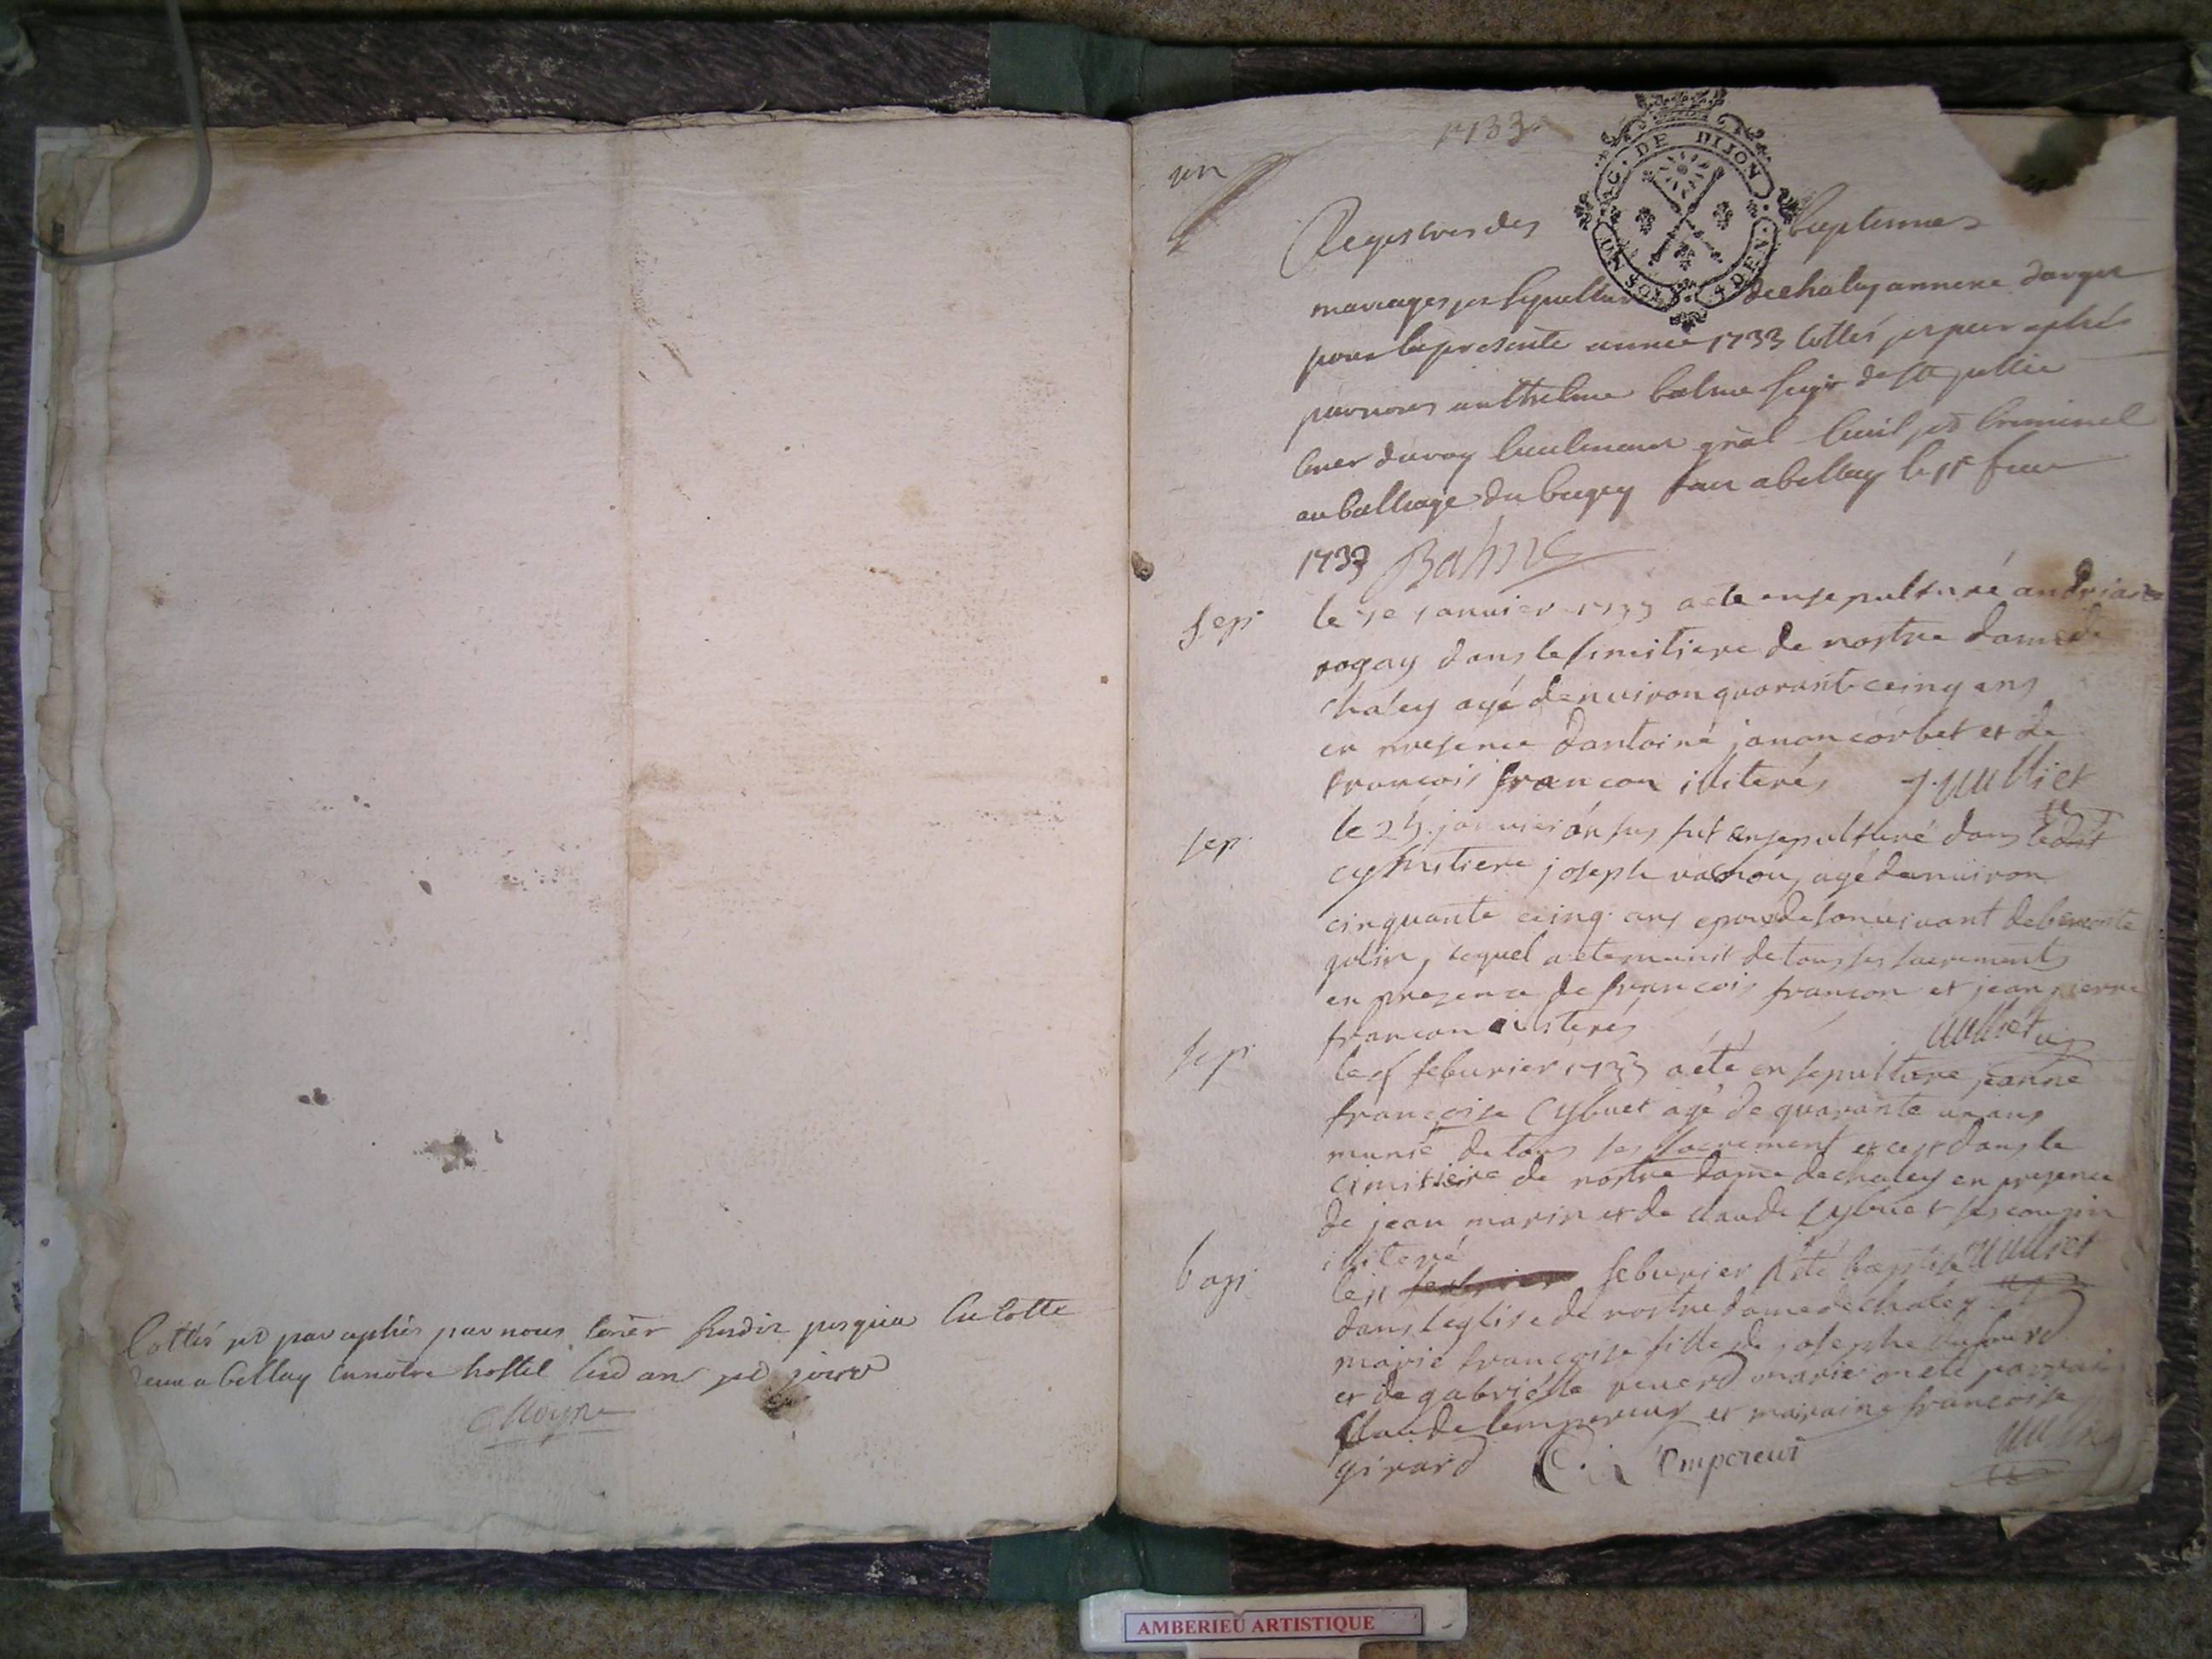 Cottés et paraphés par nous conèr susdit jusqua la cotte
deux a bellay en notre hostel lesd an et jour
1733
un
GEN. DE DIJON
UN SOL 4 DEN.
Registres des baptemes
mariages et sepultures de chaley annexe darger
pour la presente annee 1733 cottés et paraphés
par nous anthelme balme seigr de ste jullie
coner du roy lieutenant gñal civil et criminel
au balliage du bugey fait a bellay le
1733 Balme
sep.
le janvier 1733 a ete ensepulturé
dans le simitiere de nostre dame de
chaley agé denuiron quarante cinq ans
en presence dantoine corbet et de
francois francon illiterés
sep.
le janvier an sus fut ensepulturé dans ledit
cymitiere joseph agé denuiron
cinquante cinq ans epoux de son vivant de benoite
lequel a ete munit de tous ses sacrements
en presence de francois francon et jean pierre
francon illiterés
sep.
le feburier 1733 a été ensepulture jeanne
francoise Cybuet agé de quarante un ans
munie de tous ses sacrement et ce dans le
cimitiere de nostre dame de chaley en presence
de jean marin et de claude Cybuet ses cousin
illiteré
bap.
le 11 feburier a été baptisé
dans leglise de nostre dame de chaley
marie francoise fille de josephe
et de gabrielle renerd marie on été parrain
Claude lempereur et maraine francoise
girard C. L'Empereur